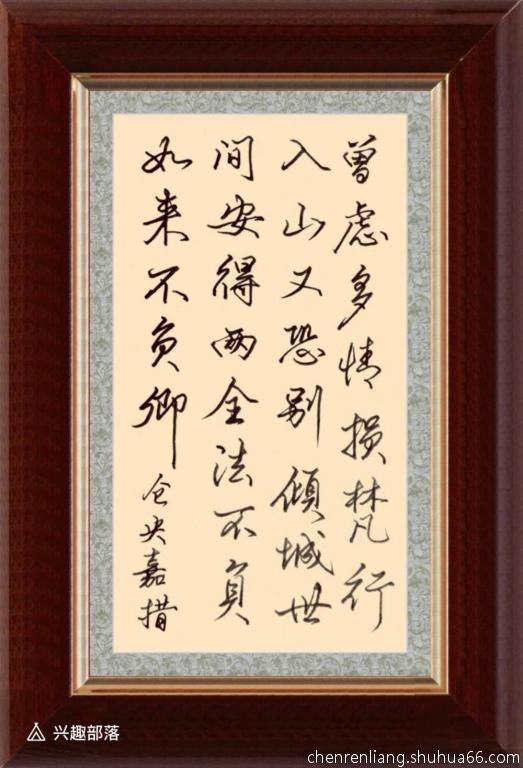 曾虑多情损梵行
入山又恐别倾城世
间安得两全法不负
如来不负卿
仓央嘉措
兴趣部落
chenrenliang.shuhua66.com